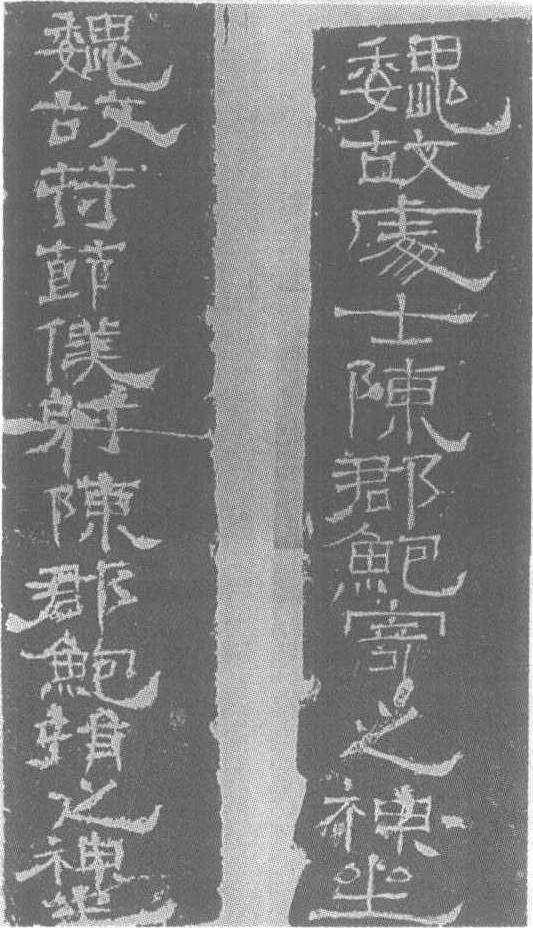 魏故處士陳郡鮑寄之神坐
魏故持節僕射陳郡鮑捐之神坐